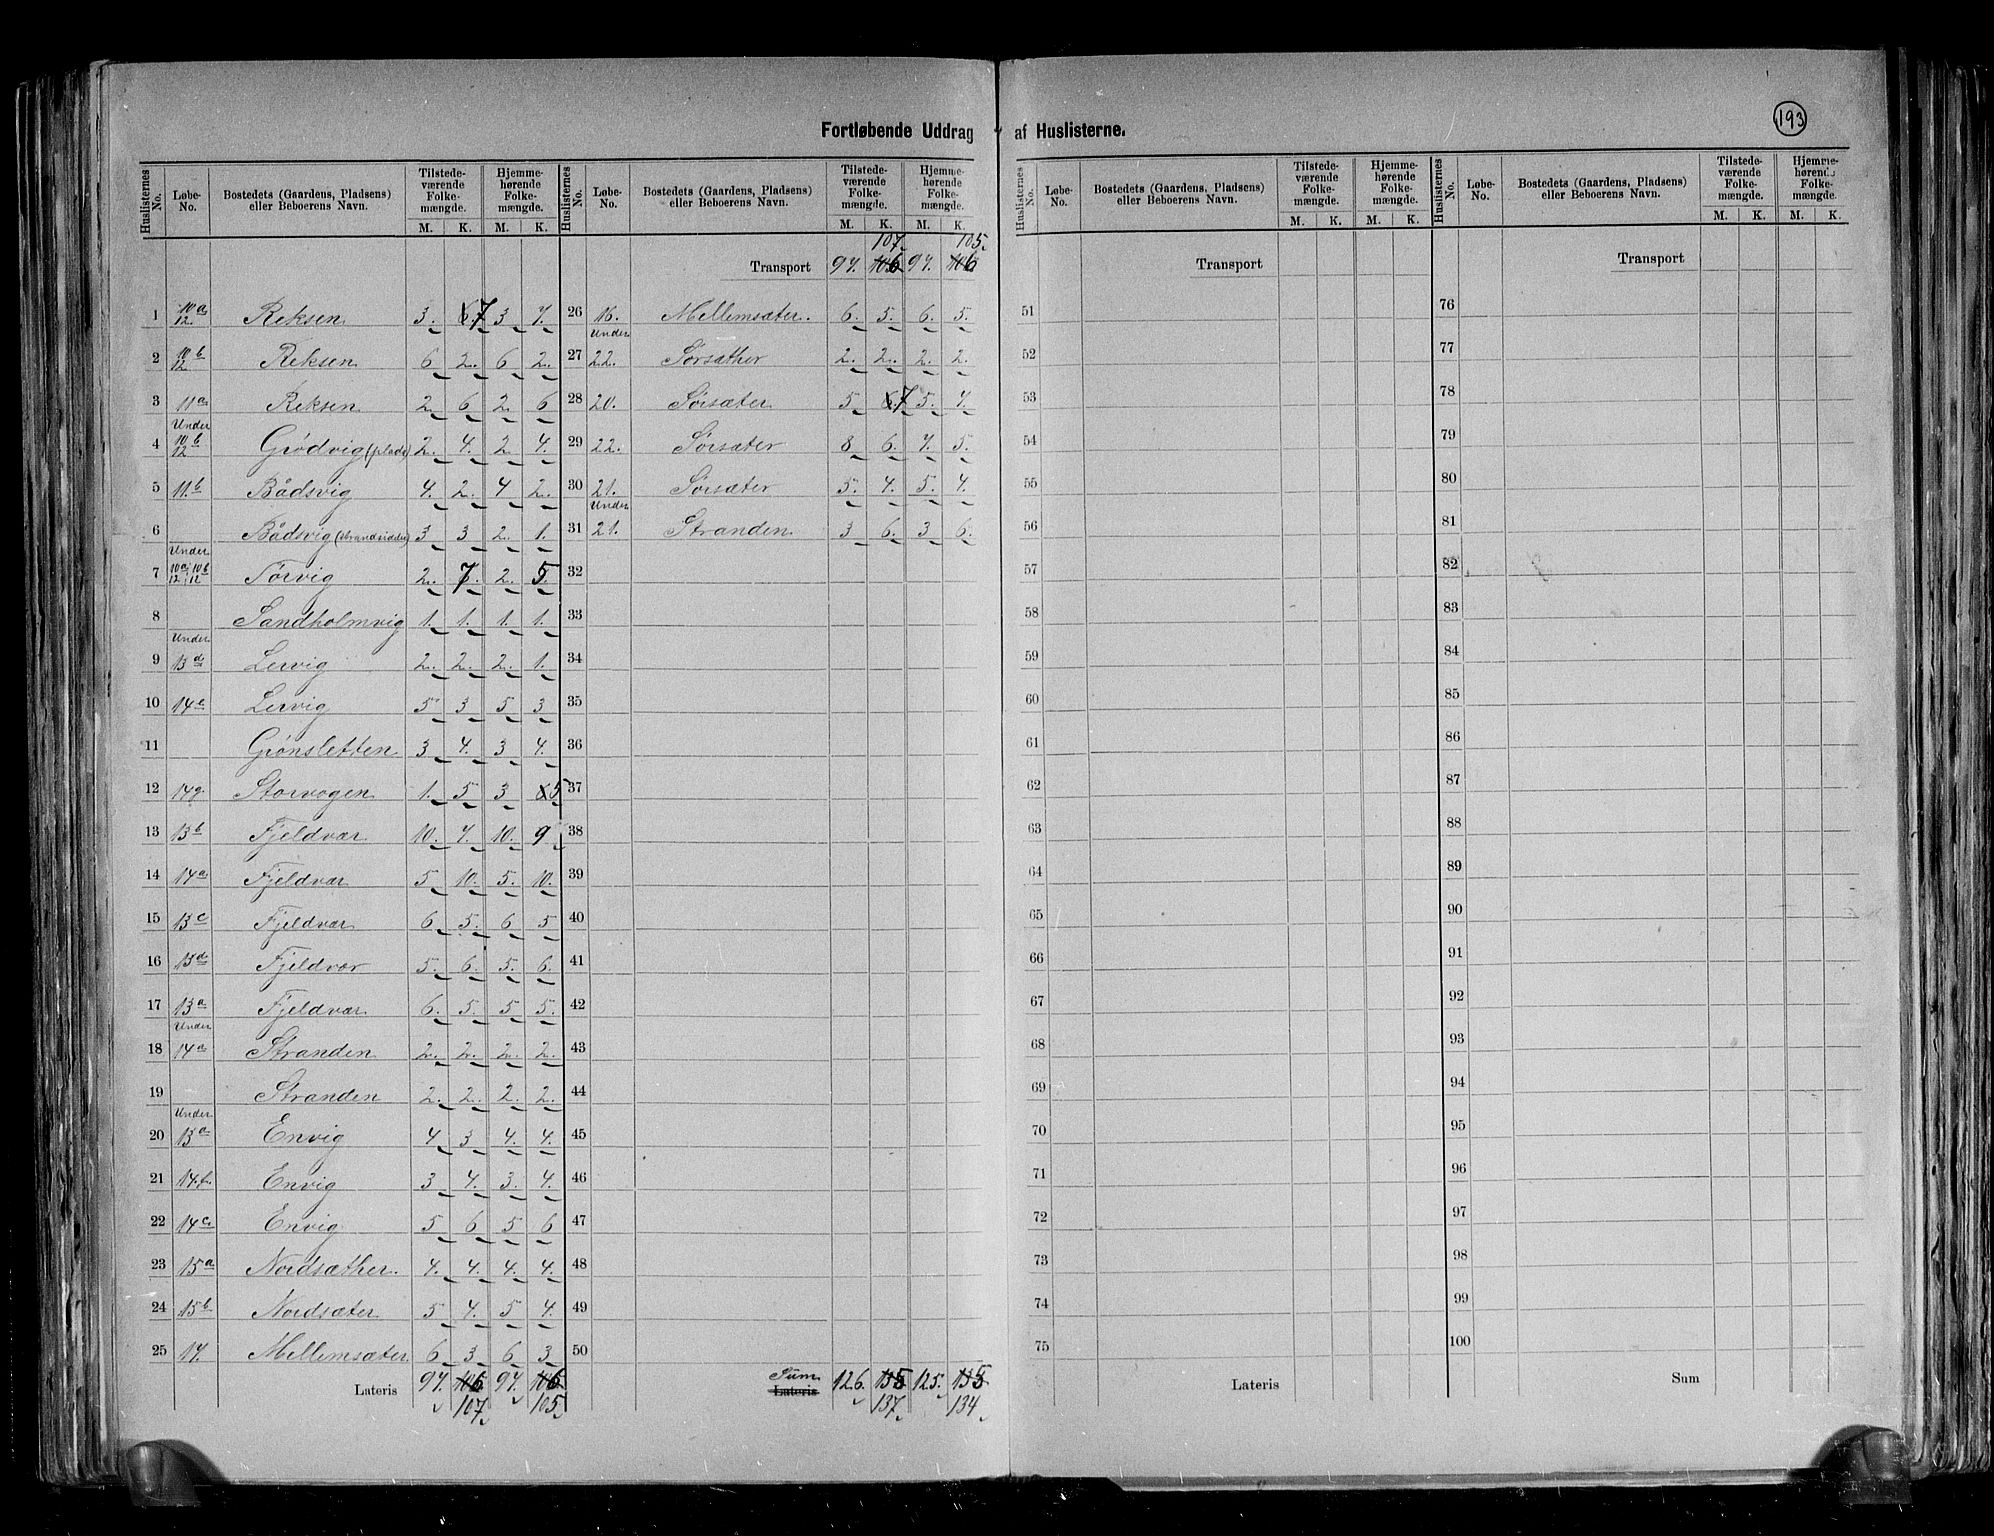 193
Fortløbende Uddrag af Huslisterne.
Huslisternes No. | Løbe-No. | Bostedets (Gaardens, Pladsens) eller Beboerens Navn. | Tilstedeværende Folkemængde. M. K. | Hjemmehørende Folkemængde. M. K.
1 | 10a 12. | Reksen | 3. | 6. 7 | 3 | 7.
2 | 10b 12 | Reksen | 6 | 2. | 6 | 2.
3 | 11a | Reksen | 2. | 6 | 2. | 6
4 | Under 10b 12 | Grödvig (plads) | 2. | 4. | 2. | 4.
5 | 11.b | Bådsvig | 4. | 2. | 4 | 2.
6 | Bådsvig (strandsidder) | 3 | 3 | 2. | 1.
7 | Under 10a 12 10b 12 | Törvig | 2. | 7. | 2. | 5.
8 | Sandholmvig | 1. | 1. | 1. | 1.
9 | Under 13d | Lervig | 2. | 2. | 2. | 1.
10 | 14e | Lervig | 5 | 3 | 5 | 3
11 | Grönsletten | 3 | 4. | 3 | 4.
12 | 14g. | Storvogen | 1. | 5 | 3 | 6 5
13 | 13b | Fjeldvær | 10. | 7. | 10. | 9
14 | 14a | Fjeldvær | 5 | 10. | 5. | 10.
15 | 13c | Fjeldvær | 6 | 5. | 6 | 5
16 | 13d | Fjeldvær | 5. | 6. | 5. | 6.
17 | 13a | Fjeldvær | 6. | 5. | 5 | 5.
18 | Under 14a | Stranden | 2. | 2. | 2. | 2.
19 | Stranden | 2. | 2. | 2. | 2.
20 | Under 13a | Envig | 4 | 3 | 4. | 4.
21 | 14f. | Envig | 3 | 4. | 3. | 4.
22 | 14c. | Envig | 5 | 6 | 5 | 6
23 | 15a | Nordsæther. | 4. | 4. | 4. | 4.
24 | 15b | Nordsæter | 5 | 4. | 5 | 4.
25 | 17. | Mellemsæter. | 6 | 3 | 6 | 3
Lateris | 97. | 106 | 97. | 106
107. | 105.
Huslisternes No. | Løbe-No. | Bostedets (Gaardens, Pladsens) eller Beboerens Navn. | Tilstedeværende Folkemængde. M. K. | Hjemmehørende Folkemængde. M. K.
107. | 105.
Transport | 97. | 106 | 97. | 106
26 | 16. | Mellemsæter. | 6. | 5. | 6. | 5.
27 | Under 22. | Sörsæther | 2. | 2. | 2. | 2.
28 | 20. | Sörsæter | 5. | 6. 7 | 5. | 7.
29 | 22. | Sörsæter | 8 | 6. | 7. | 5.
30 | 21. | Sörsæter | 5. | 4. | 5. | 4.
31 | Under 21. | Stranden. | 3 | 6. | 3 | 6.
32
33
34
35
36
37
38
39
40
41
42
43
44
45
46
47
48
49
50
Sum Lateris | 126. | 135 | 125. | 135
137. | 134
Huslisternes No. | Løbe-No. | Bostedets (Gaardens, Pladsens) eller Beboerens Navn. | Tilstedeværende Folkemængde. M. K. | Hjemmehørende Folkemængde. M. K.
Transport
51
52
53
54
55
56
57
58
59
60
61
62
63
64
65
66
67
68
69
70
71
72
73
74
75
Lateris
Huslisternes No. | Løbe-No. | Bostedets (Gaardens, Pladsens) eller Beboerens Navn. | Tilstedeværende Folkemængde. M. K. | Hjemmehørende Folkemængde. M. K.
Transport
76
77
78
79
80
81
82
83
84
85
86
87
88
89
90
91
92
93
94
95
96
97
98
99
100
Sum